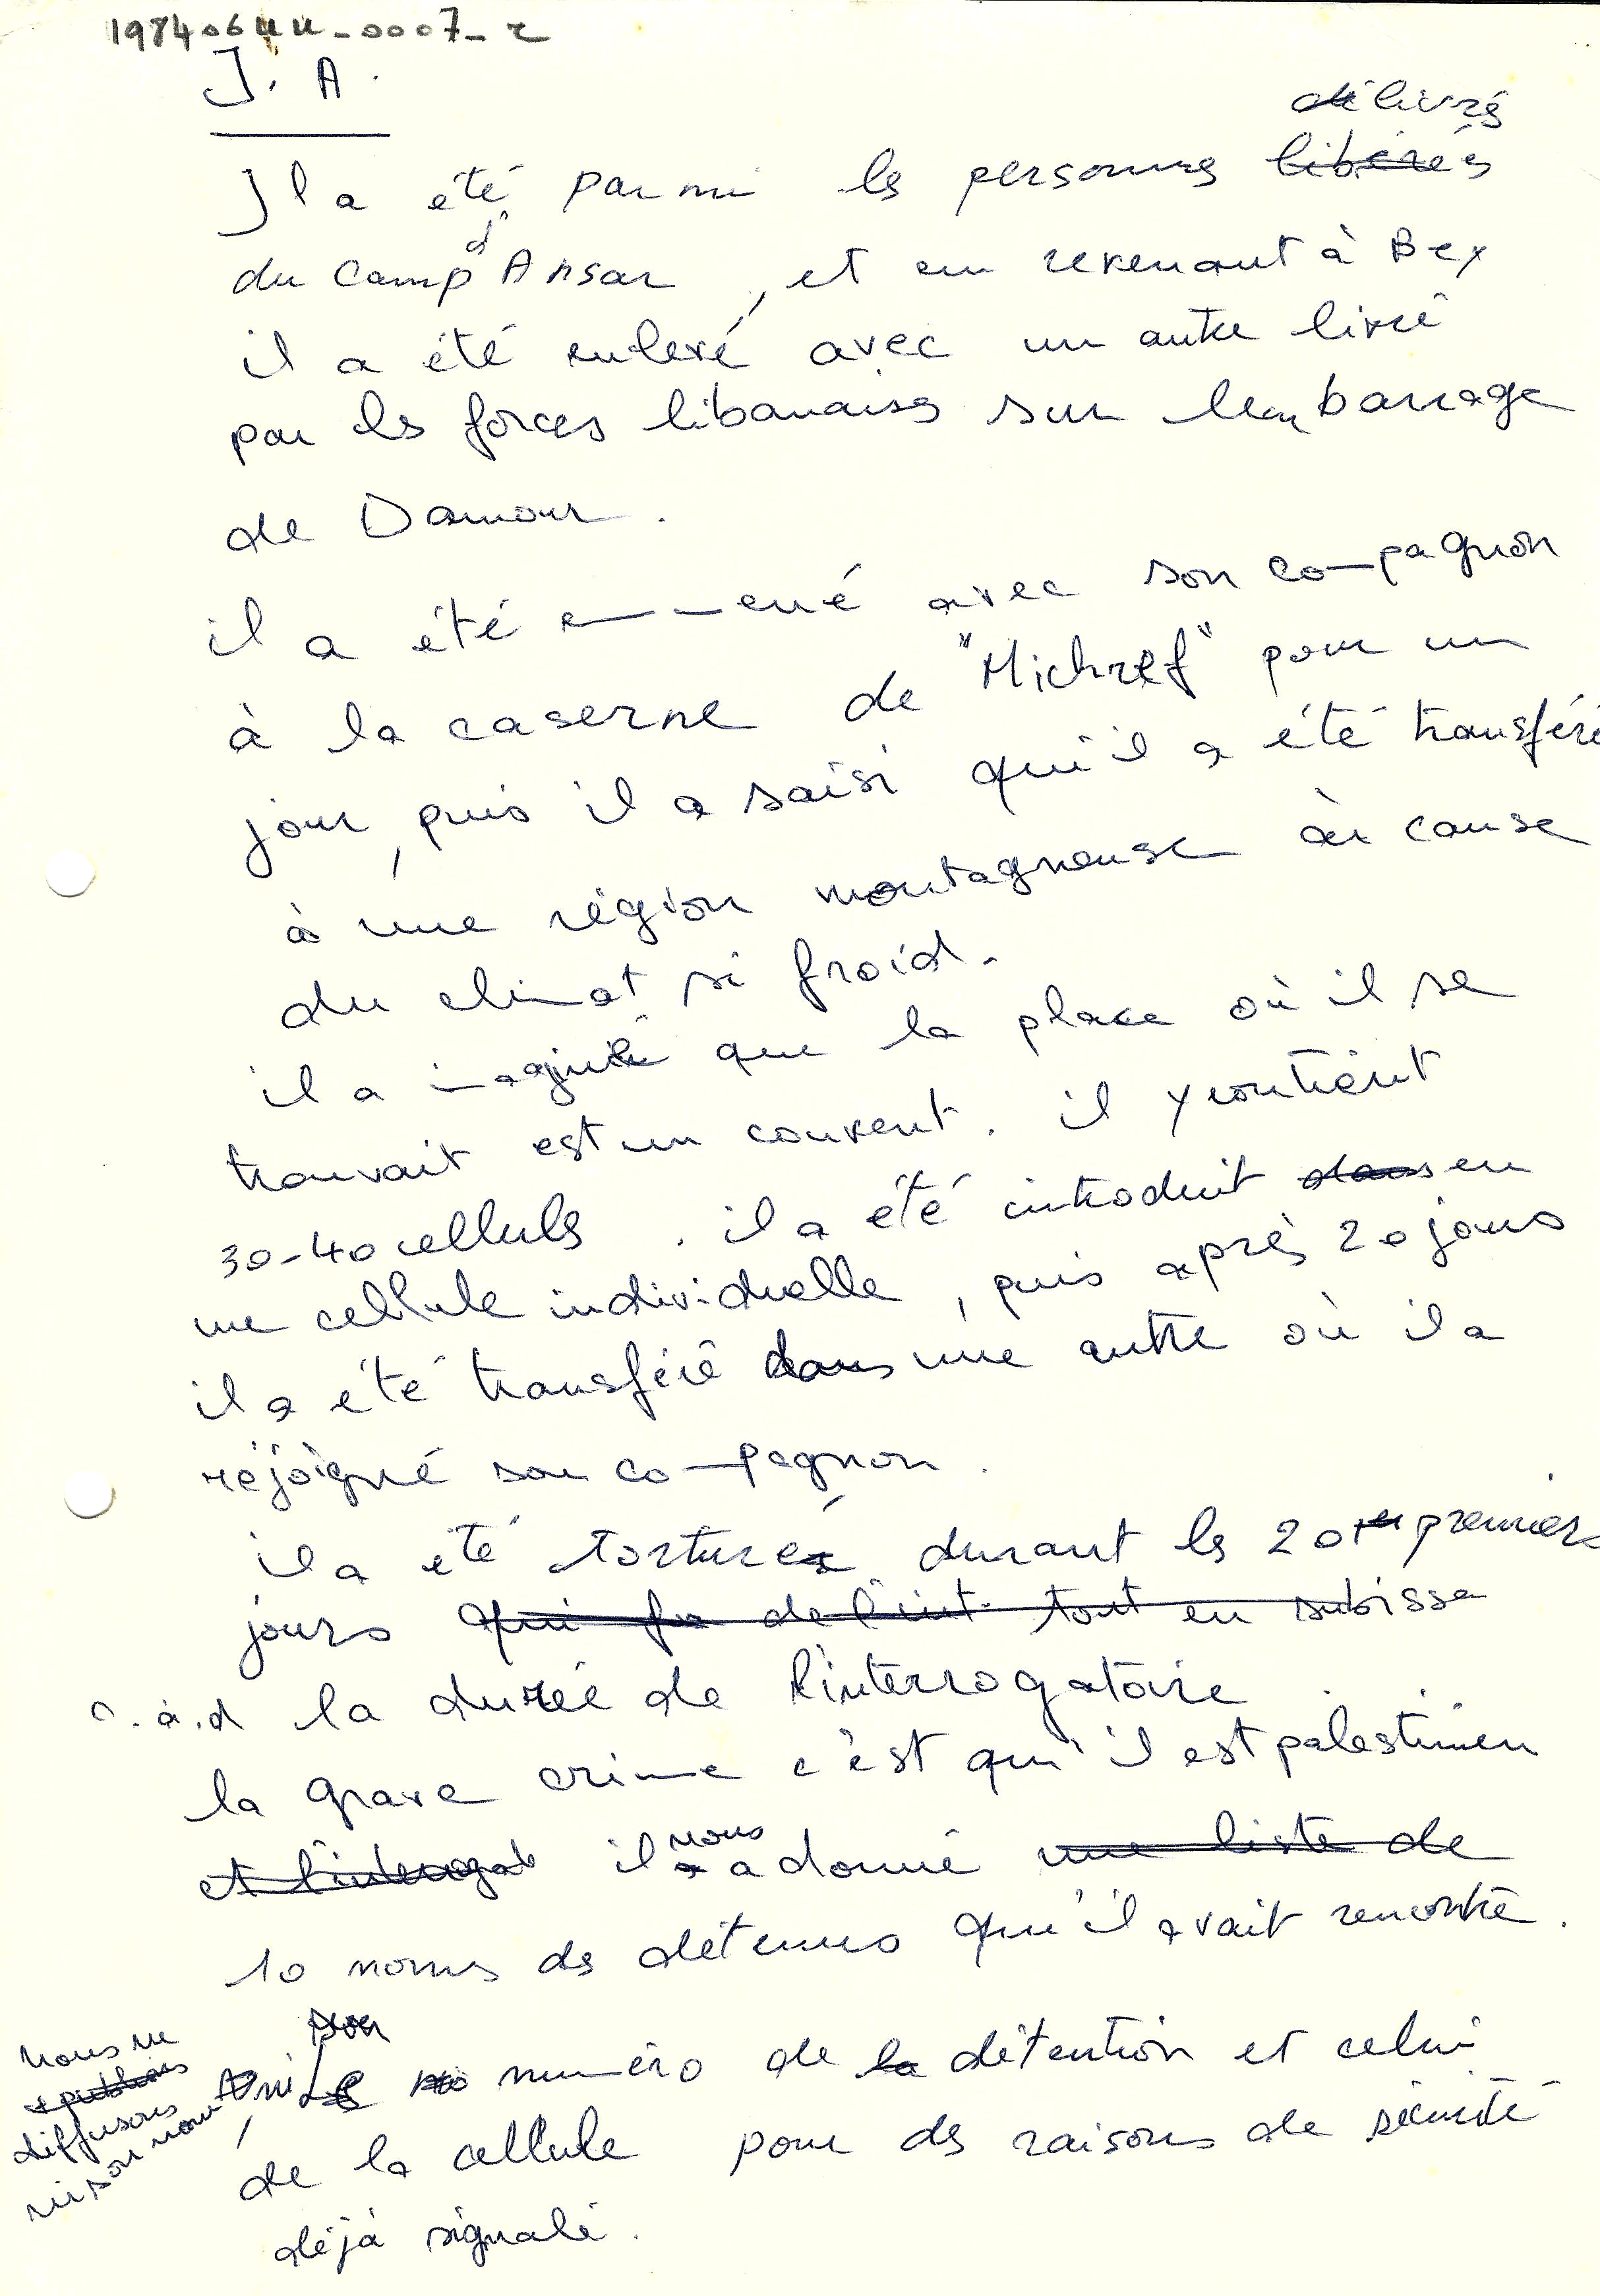 198406uu-0007-2
J. A.
délivrés
Il a été parmi les personnes libérées
du camp d'Ansar, et en revenant à Bey
il a été enlevé avec un autre livré
par les forces libanaises sur leur barrage
de Damour.
il a été emmené avec son compagnon
à la caserne de "Michref" pour un
jour, puis il a saisi qu'il a été transféré
à une région montagneuse à cause
du climat si froid.
il a imaginé que la place où il se
trouvait est un couvent. il y contient
30-40 cellules. il a été introduit dans en
une cellule individuelle, puis après 20 jours
il a été transféré dans une autre où il a
réjoigné son compagnon.
il a été torturé durant les 20 premiers
jours qui de l'int. tout en subissa
c.à.d la durée de l'interrogatoire.
la grave crime c'est qu'il est palestinien
et l'interrogat il nous a donné une liste de
10 noms des détenus qu'il avait rencontré.
nous ne
publions
diffusons
ni son nom, ni son numéro de la détention et celui
de la cellule pour des raisons de sécurité
déjà signalé.